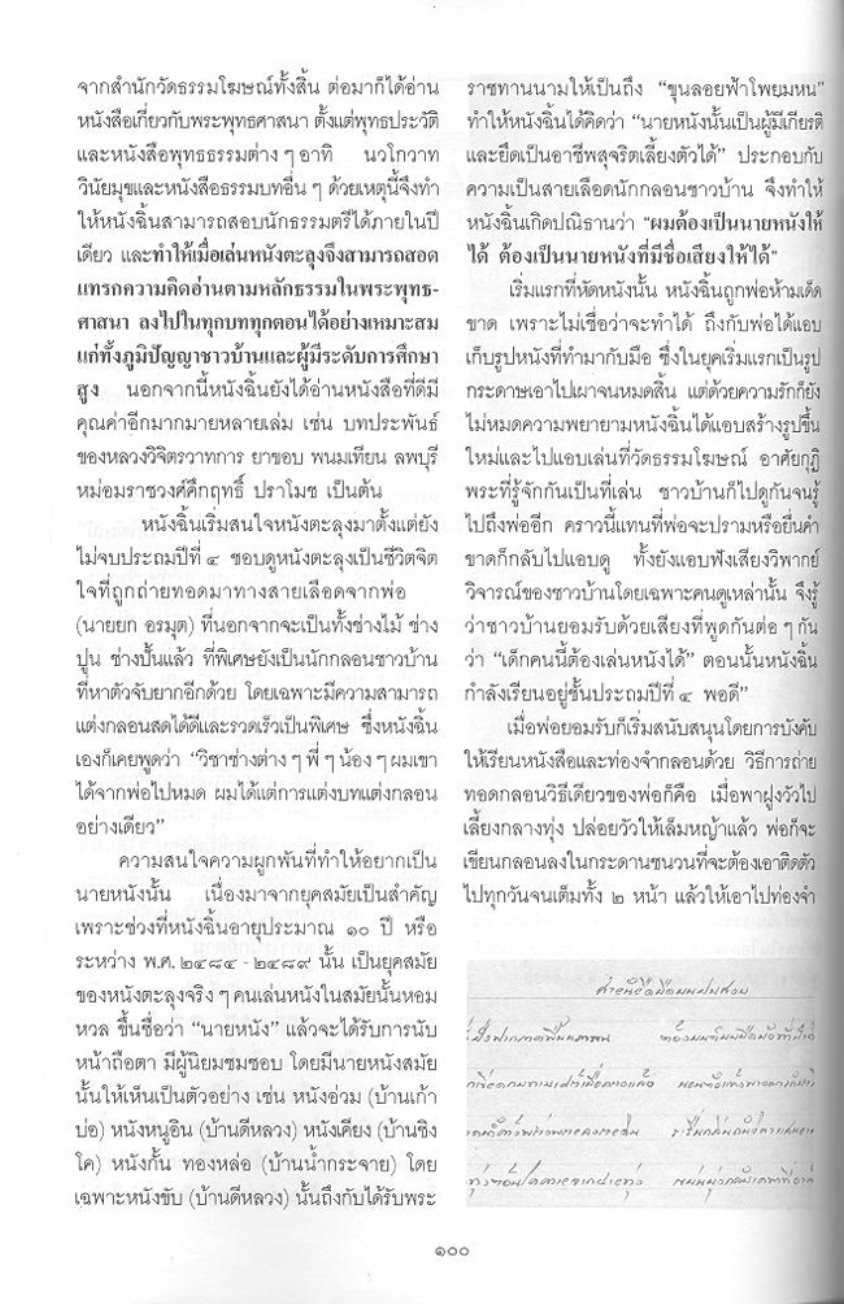 จากสำนักวัดธรรมโฆษณ์ทั้งสิ้น ต่อมาก็ได้อ่าน
หนังสือเกี่ยวกับพระพุทธศาสนา ตั้งแต่พุทธประวัติ
และหนังสือพุทธธรรมต่าง ๆ อาทิ นวโกวาท
วินัยมุขและหนังสือธรรมบทอื่น ๆ ด้วยเหตุนี้จึงทำ
ให้หนังฉิ้นสามารถสอบนักธรรมตรีได้ภายในปี
เดียว และทำให้เมื่อเล่นหนังตะลุงจึงสามารถสอด
แทรกความคิดอ่านตามหลักธรรมในพระพุทธ-
ศาสนา ลงไปในทุกบททุกตอนได้อย่างเหมาะสม
แก่ทั้งภูมิปัญญาชาวบ้านและผู้มีระดับการศึกษา
สูง นอกจากนี้หนังฉิ้นยังได้อ่านหนังสือที่ดีมี
คุณค่าอีกมากมายหลายเล่ม เช่น บทประพันธ์
ของหลวงวิจิตรวาทการ ยาขอบ พนมเทียน ลพบุรี
หม่อมราชวงศ์คึกฤทธิ์ ปราโมช เป็นต้น
หนังฉิ้นเริ่มสนใจหนังตะลุงมาตั้งแต่ยัง
ไม่จบประถมปีที่ ๔ ชอบดูหนังตะลุงเป็นชีวิตจิต
ใจที่ถูกถ่ายทอดมาทางสายเลือดจากพ่อ
(นายยก อรมุต) ที่นอกจากจะเป็นทั้งช่างไม้ ช่าง
ปูน ช่างปั้นแล้ว ที่พิเศษยังเป็นนักกลอนชาวบ้าน
ที่หาตัวจับยากอีกด้วย โดยเฉพาะมีความสามารถ
แต่งกลอนสดได้ดีและรวดเร็วเป็นพิเศษ ซึ่งหนังฉิ้น
เองก็เคยพูดว่า "วิชาช่างต่าง ๆ พี่ ๆ น้อง ๆ ผมเขา
ได้จากพ่อไปหมด ผมได้แต่การแต่งบทแต่งกลอน
อย่างเดียว"
ความสนใจความผูกพันที่ทำให้อยากเป็น
นายหนังนั้น เนื่องมาจากยุคสมัยเป็นสำคัญ
เพราะช่วงที่หนังฉิ้นอายุประมาณ ๑๐ ปี หรือ
ระหว่าง พ.ศ. ๒๔๘๔ - ๒๔๘๙ นั้น เป็นยุคสมัย
ของหนังตะลุงจริง ๆ คนเล่นหนังในสมัยนั้นหอม
หวล ขึ้นชื่อว่า "นายหนัง" แล้วจะได้รับการนับ
หน้าถือตา มีผู้นิยมชมชอบ โดยมีนายหนังสมัย
นั้นให้เห็นเป็นตัวอย่าง เช่น หนังอ่วม (บ้านเก้า
บ่อ) หนังหนูอิน (บ้านดีหลวง) หนังเคียง (บ้านชิง
โค) หนังกั้น ทองหล่อ (บ้านน้ำกระจาย) โดย
เฉพาะหนังขับ (บ้านดีหลวง) นั้นถึงกับได้รับพระ
ราชทานนามให้เป็นถึง "ขุนลอยฟ้าโพยมหน"
ทำให้หนังฉิ้นได้คิดว่า "นายหนังนั้นเป็นผู้มีเกียรติ
และยึดเป็นอาชีพสุจริตเลี้ยงตัวได้" ประกอบกับ
ความเป็นสายเลือดนักกลอนชาวบ้าน จึงทำให้
หนังฉิ้นเกิดปณิธานว่า "ผมต้องเป็นนายหนังให้
ได้ ต้องเป็นนายหนังที่มีชื่อเสียงให้ได้"
เริ่มแรกที่หัดหนังนั้น หนังฉิ้นถูกพ่อห้ามเด็ด
ขาด เพราะไม่เชื่อว่าจะทำได้ ถึงกับพ่อได้แอบ
เก็บรูปหนังที่ทำมากับมือ ซึ่งในยุคเริ่มแรกเป็นรูป
กระดาษเอาไปเผาจนหมดสิ้น แต่ด้วยความรักก็ยัง
ไม่หมดความพยายามหนังฉิ้นได้แอบสร้างรูปขึ้น
ใหม่และไปแอบเล่นที่วัดธรรมโฆษณ์ อาศัยกุฏิ
พระที่รู้จักกันเป็นที่เล่น ชาวบ้านก็ไปดูกันจนรู้
ไปถึงพ่ออีก คราวนี้แทนที่พ่อจะปรามหรือยื่นคำ
ขาดก็กลับไปแอบดู ทั้งยังแอบฟังเสียงวิพากย์
วิจารณ์ของชาวบ้านโดยเฉพาะคนดูเหล่านั้น จึงรู้
ว่าชาวบ้านยอมรับด้วยเสียงที่พูดกันต่อ ๆ กัน
ว่า "เด็กคนนี้ต้องเล่นหนังได้" ตอนนั้นหนังฉิ้น
กำลังเรียนอยู่ชั้นประถมปีที่ ๔ พอดี"
เมื่อพ่อยอมรับก็เริ่มสนับสนุนโดยการบังคับ
ให้เรียนหนังสือและท่องจำกลอนด้วย วิธีการถ่าย
ทอดกลอนวิธีเดียวของพ่อก็คือ เมื่อพาฝูงวัวไป
เลี้ยงกลางทุ่ง ปล่อยวัวให้เล็มหญ้าแล้ว พ่อก็จะ
เขียนกลอนลงในกระดานชนวนที่จะต้องเอาติดตัว
ไปทุกวันจนเต็มทั้ง ๒ หน้า แล้วให้เอาไปท่องจำ
๑๐๐